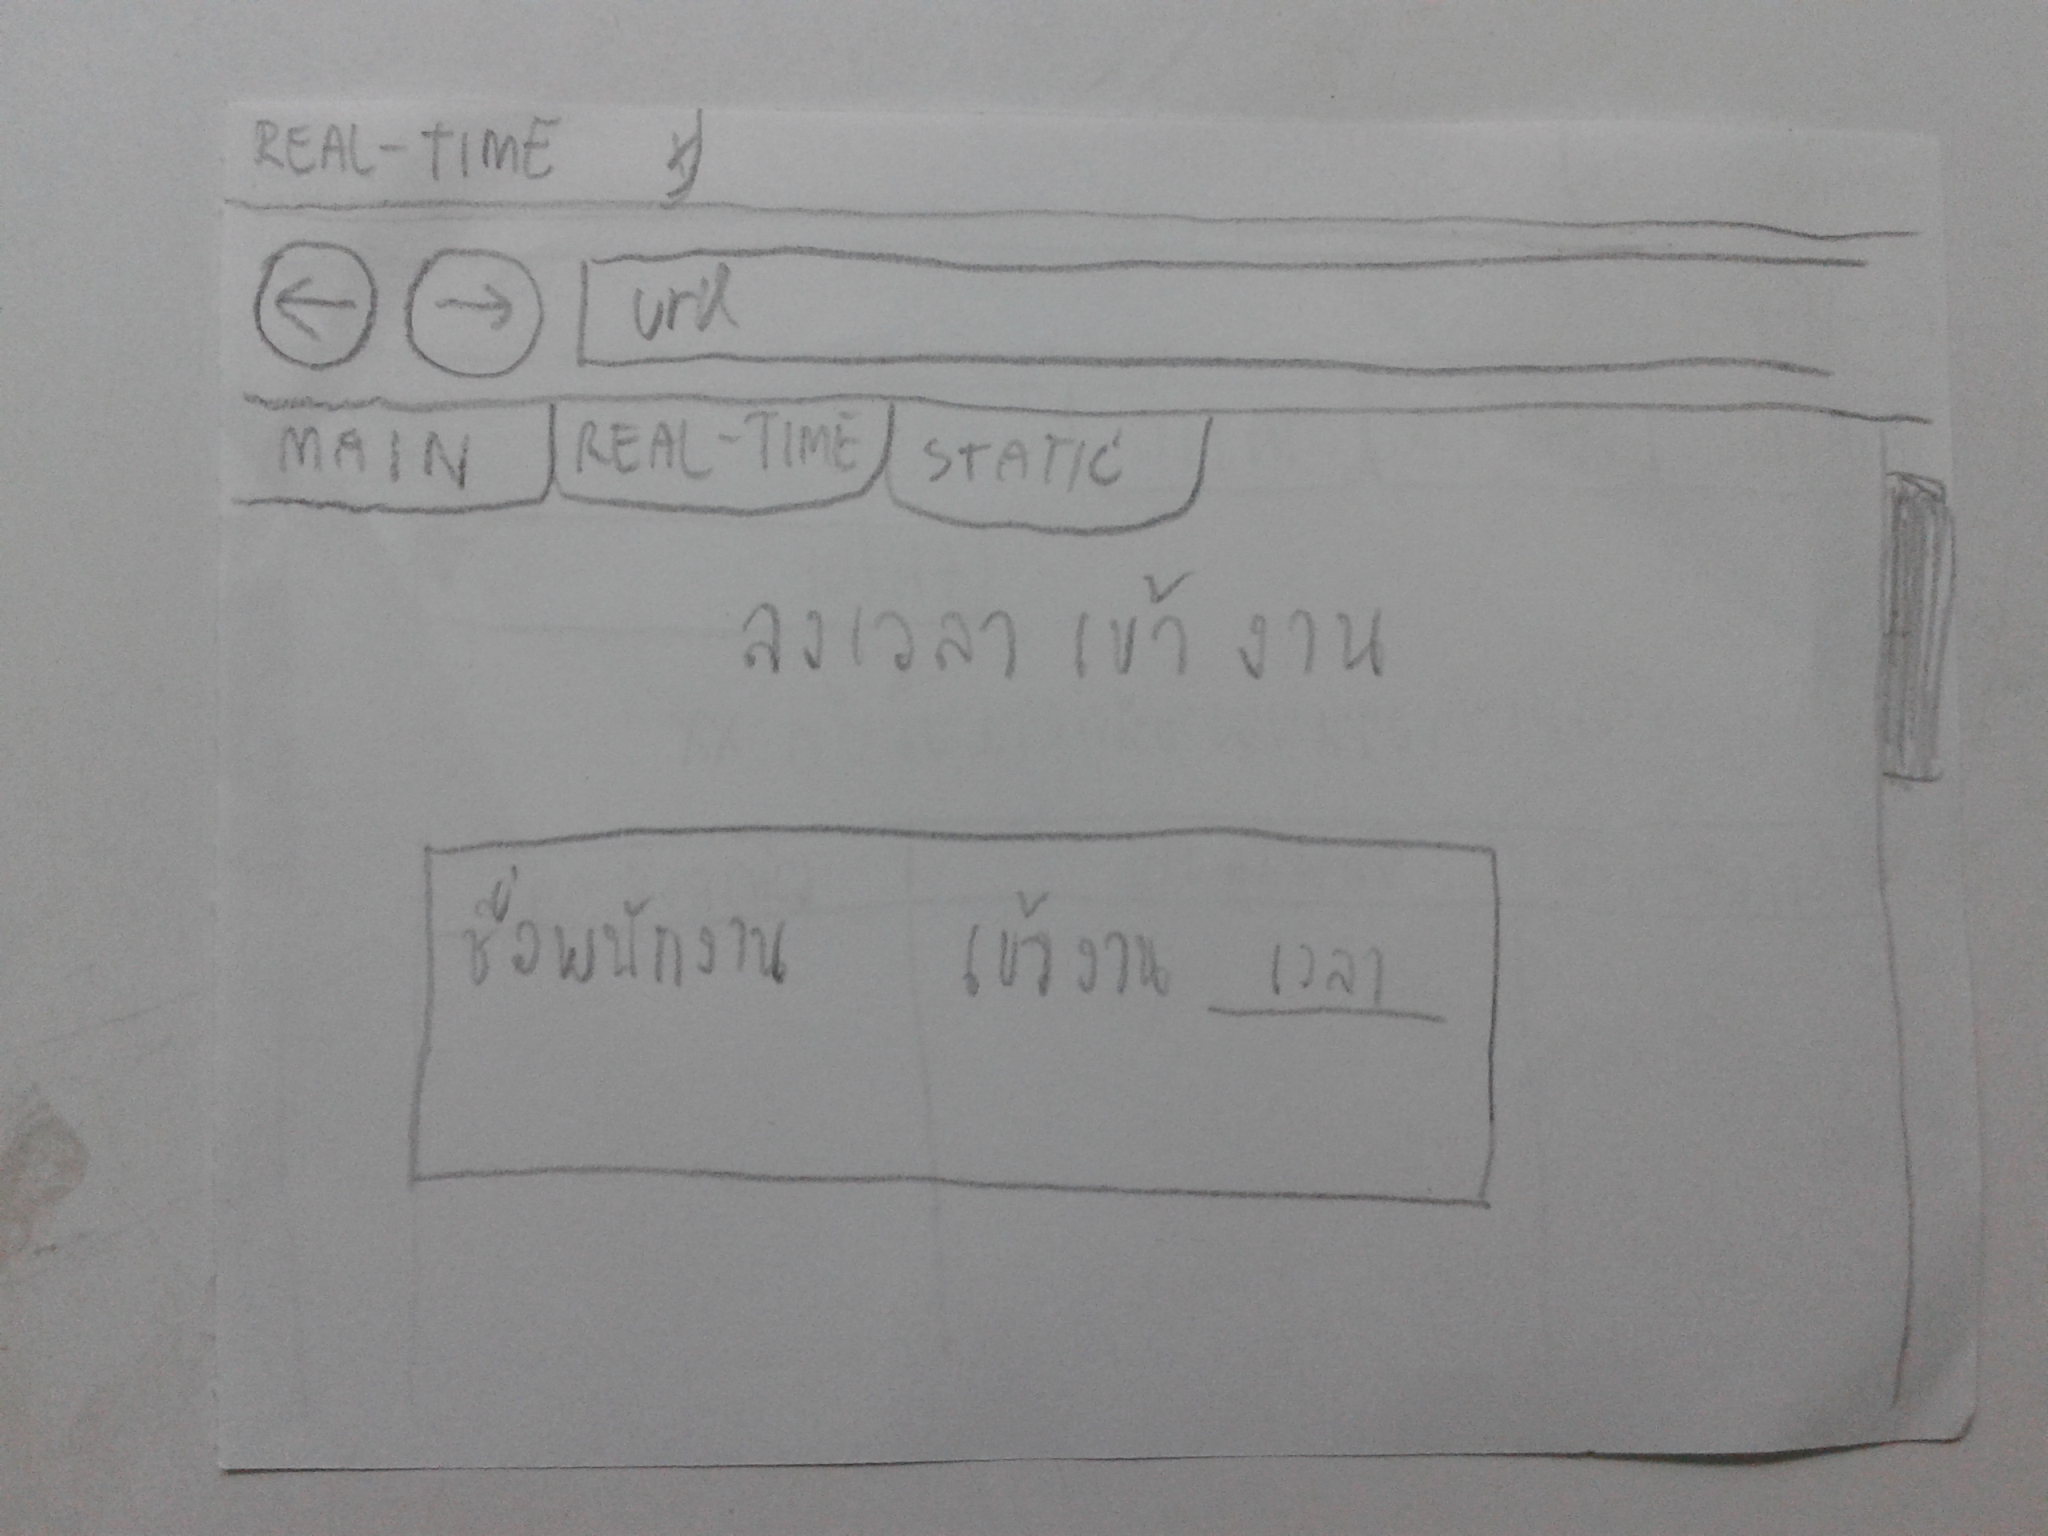 REAL-TIME x
url
MAIN REAL-TIME STATIC
ลงเวลา เข้า งาน
ชื่อพนักงาน เข้างาน เวลา